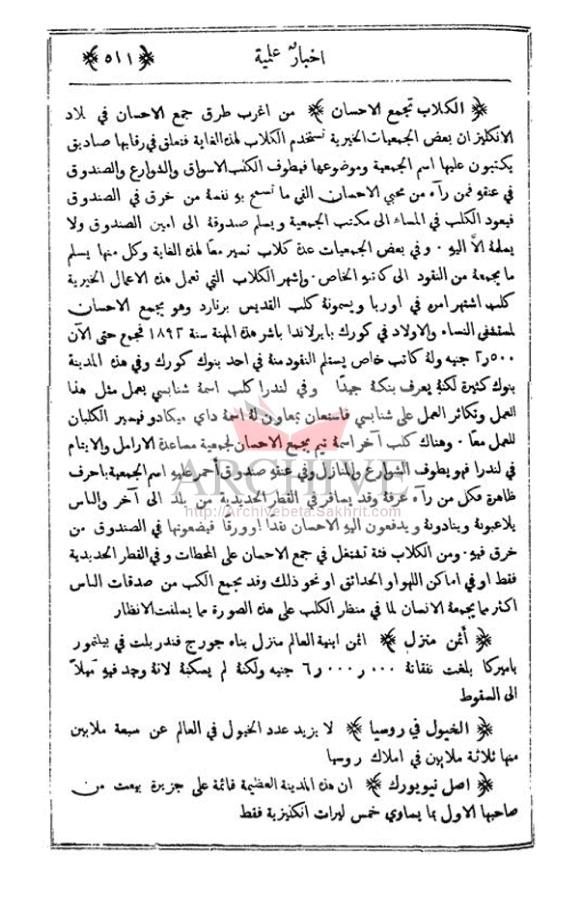 اخبار علمية
﴿ ٥١١ ﴾
﴿ الكلاب تجمع الاحسان ﴾ من اغرب طرق جمع الاحسان في بلاد
الانكليز ان بعض الجمعيات الخيرية تستخدم الكلاب لهذه الغاية فتعلق في رقابها صناديق
يكتبون عليها اسم الجمعية وموضوعها فيطوف الكلب الاسواق والشوارع والصندوق
في عنقه فمن رآه من محبي الاحسان القى ما تسمح به نفسه من خرق في الصندوق
فيعود الكلب في المساء الى مكتب الجمعية ويسلم صندوقه الى امين الصندوق ولا
يسلمه الاّ اليه . وفي بعض الجمعيات عدة كلاب تسير معًا لهذه الغاية وكل منها يسلم
ما يجمعه من النقود الى كاتبه الخاص . واشهر الكلاب التي تعمل هذه الاعمال الخيرية
كلب اشتهر امره في اوربا ويسمونه كلب القديس برنارد وهو يجمع الاحسان
لمستشفى النساء والاولاد في كورك بايرلاندا باشر هذه المهنة سنة ١٨٩٢ فجمع حتى الآن
٢٬٥٠٠ جنيه وله كاتب خاص يستلم النقود منه في احد بنوك كورك وفي هذه المدينة
بنوك كثيرة لكنه يعرف بنكه جيدًا وفي لندرا كلب اسمه شنابسي يعمل مثل هذا
العمل وتكاثر العمل على شنابسي فاستعان بمعاون له اسمه داي ميكادو فيسير الكلبان
للعمل معًا . وهناك كلب آخر اسمه تيم يجمع الاحسان لجمعية مساعدة الارامل والايتام
في لندرا فهو يطوف الشوارع والمنازل وفي عنقه صندوق أحمر عليه اسم الجمعية باحرف
ظاهرة فكل من رآه عرفه وقد يسافر في القطر الحديدية من بلد الى آخر والناس
يلاعبونه وينادونه ويدفعون اليه الاحسان نقدًا او ورقًا فيضعونها في الصندوق من
خرق فيه . ومن الكلاب فئة تشتغل في جمع الاحسان على المحطات وفي القطر الحديدية
فقط او في اماكن اللهو او الحدائق او نحو ذلك وقد يجمع الكلب من صدقات الناس
اكثر مما يجمعه الانسان لما في منظر الكلب على هذه الصورة مما يستلفت الانظار
﴿ أثمن منزل ﴾ اثمن ابنية العالم منزل بناه جورج فندربلت في بيلتمور
باميركا بلغت نفقاته ٦٬٠٠٠٬٠٠٠ جنيه ولكنه لم يسكنه لانه وجد فيه ميلاً
الى السقوط
﴿ الخيول في روسيا ﴾ لا يزيد عدد الخيول في العالم عن سبعة ملايين
منها ثلاثة ملايين في املاك روسيا
﴿ اصل نيويورك ﴾ ان هذه المدينة العظيمة قائمة على جزيرة بيعت من
صاحبها الاول بما يساوي خمس ليرات انكليزية فقط
ARCHIVE
http://Archivebeta.Sakhrit.com